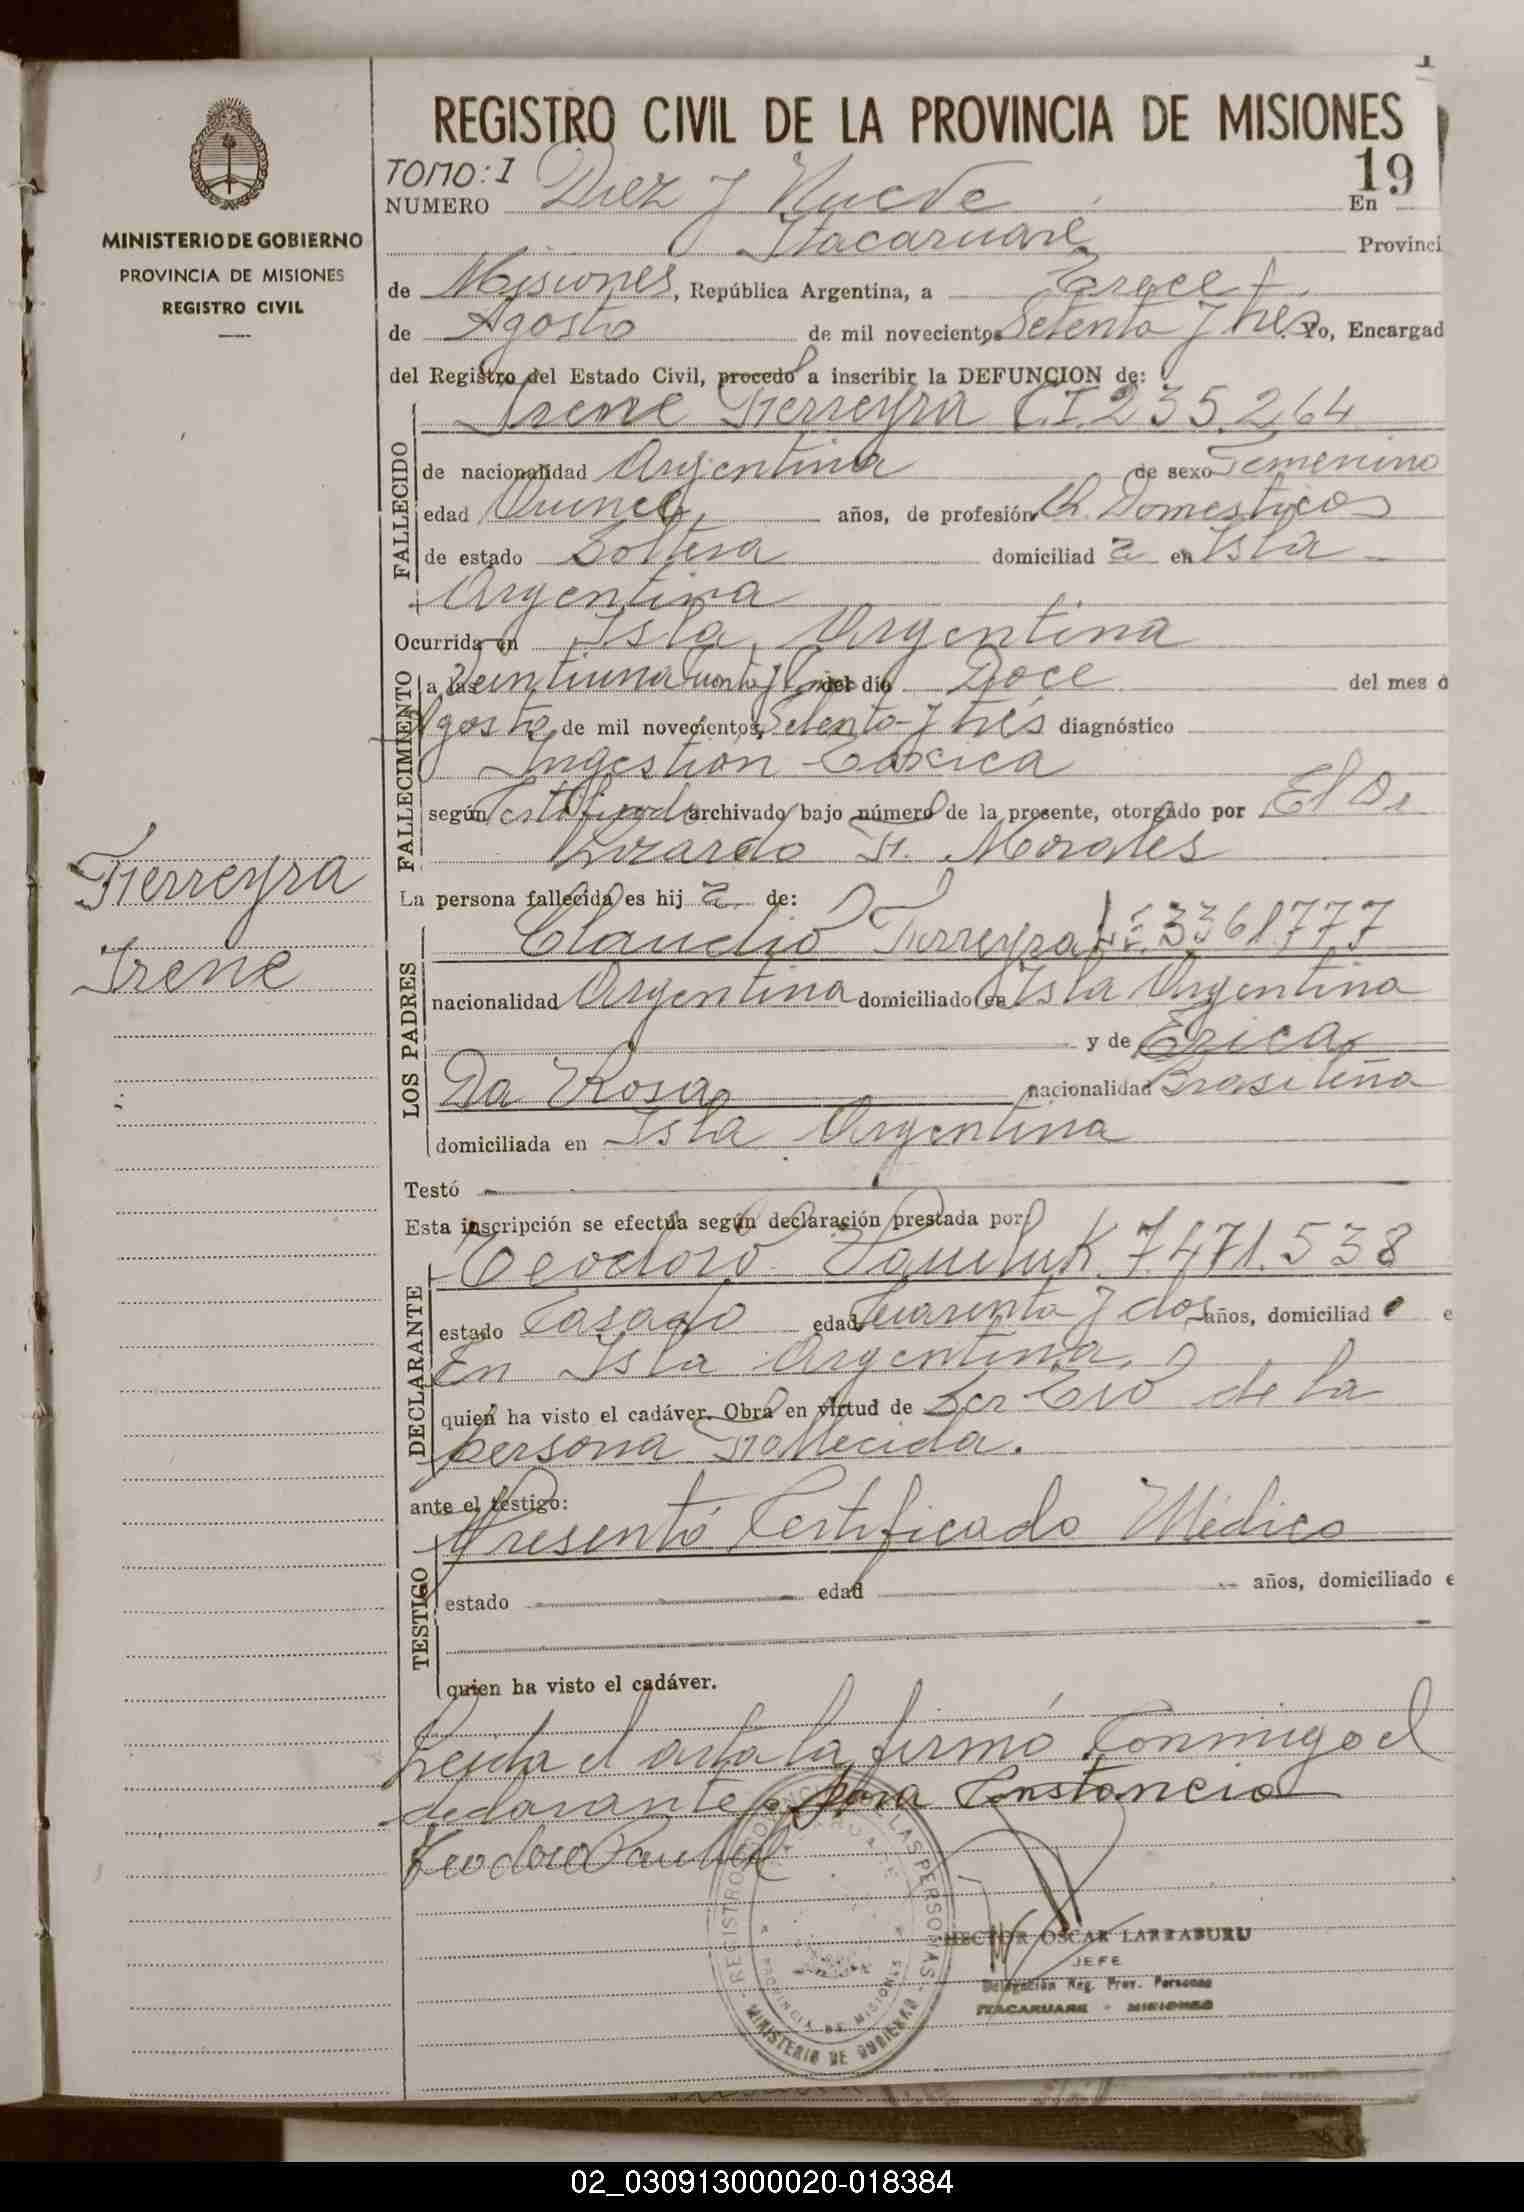 MINISTERIO DE GOBIERNO
PROVINCIA DE MISIONES
REGISTRO CIVIL
Fierreyra
Irene
REGISTRO CIVIL DE LA PROVINCIA DE MISIONES
TOMO: I
19
NUMERO Diez y Nueve En
Itacaruare Provinci
de Misiones, República Argentina, a Trece
de Agosto de mil novecientos Setenta y tres. Yo, Encargad
del Registro del Estado Civil, procedo a inscribir la DEFUNCION de:
Irene Fierreyra C.I. 235.264
FALLECIDO
de nacionalidad Argentina de sexo Femenino
edad Quince años, de profesión Q. Domesticos
de estado Soltera domiciliad a en Isla
Argentina
FALLECIMIENTO
Ocurrida en Isla Argentina
a las Veintiuna del día Doce del mes d
Agosto de mil novecientos Setenta y trés diagnóstico
Ingestion Toxica
según Certificado archivado bajo número de la presente, otorgado por El Dr
Lizardo F. Morales
La persona fallecida es hij a de:
LOS PADRES
Claudio Fierreyra L.E. 3361777
nacionalidad Argentina domiciliado en Isla Argentina
y de Erica
Da Rosa nacionalidad Brasileña
domiciliada en Isla Argentina
Testó
Esta inscripción se efectúa según declaración prestada por:
DECLARANTE
Teodoro Pauluk 7.471.538
estado Casado edad Cuarenta y dos años, domiciliad o e
En Isla Argentina,
quien ha visto el cadáver. Obra en virtud de Ser Tio de la
persona Fallecida.
ante el testigo:
TESTIGO
Presentó Certificado Médico
estado edad años, domiciliado e
quien ha visto el cadáver.
Leida el acta la firmó Conmigo el
declarante para Constancia
Teodoro Pauluk
REGISTRO PROVINCIAL DE LAS PERSONAS
ITACARUARE
PROVINCIA DE MISIONES
MINISTERIO DE GOBIERNO
HECTOR OSCAR LARRABURU
JEFE
Delegación Reg. Prov. Personas
ITACARUARE - MISIONES
02_030913000020-018384